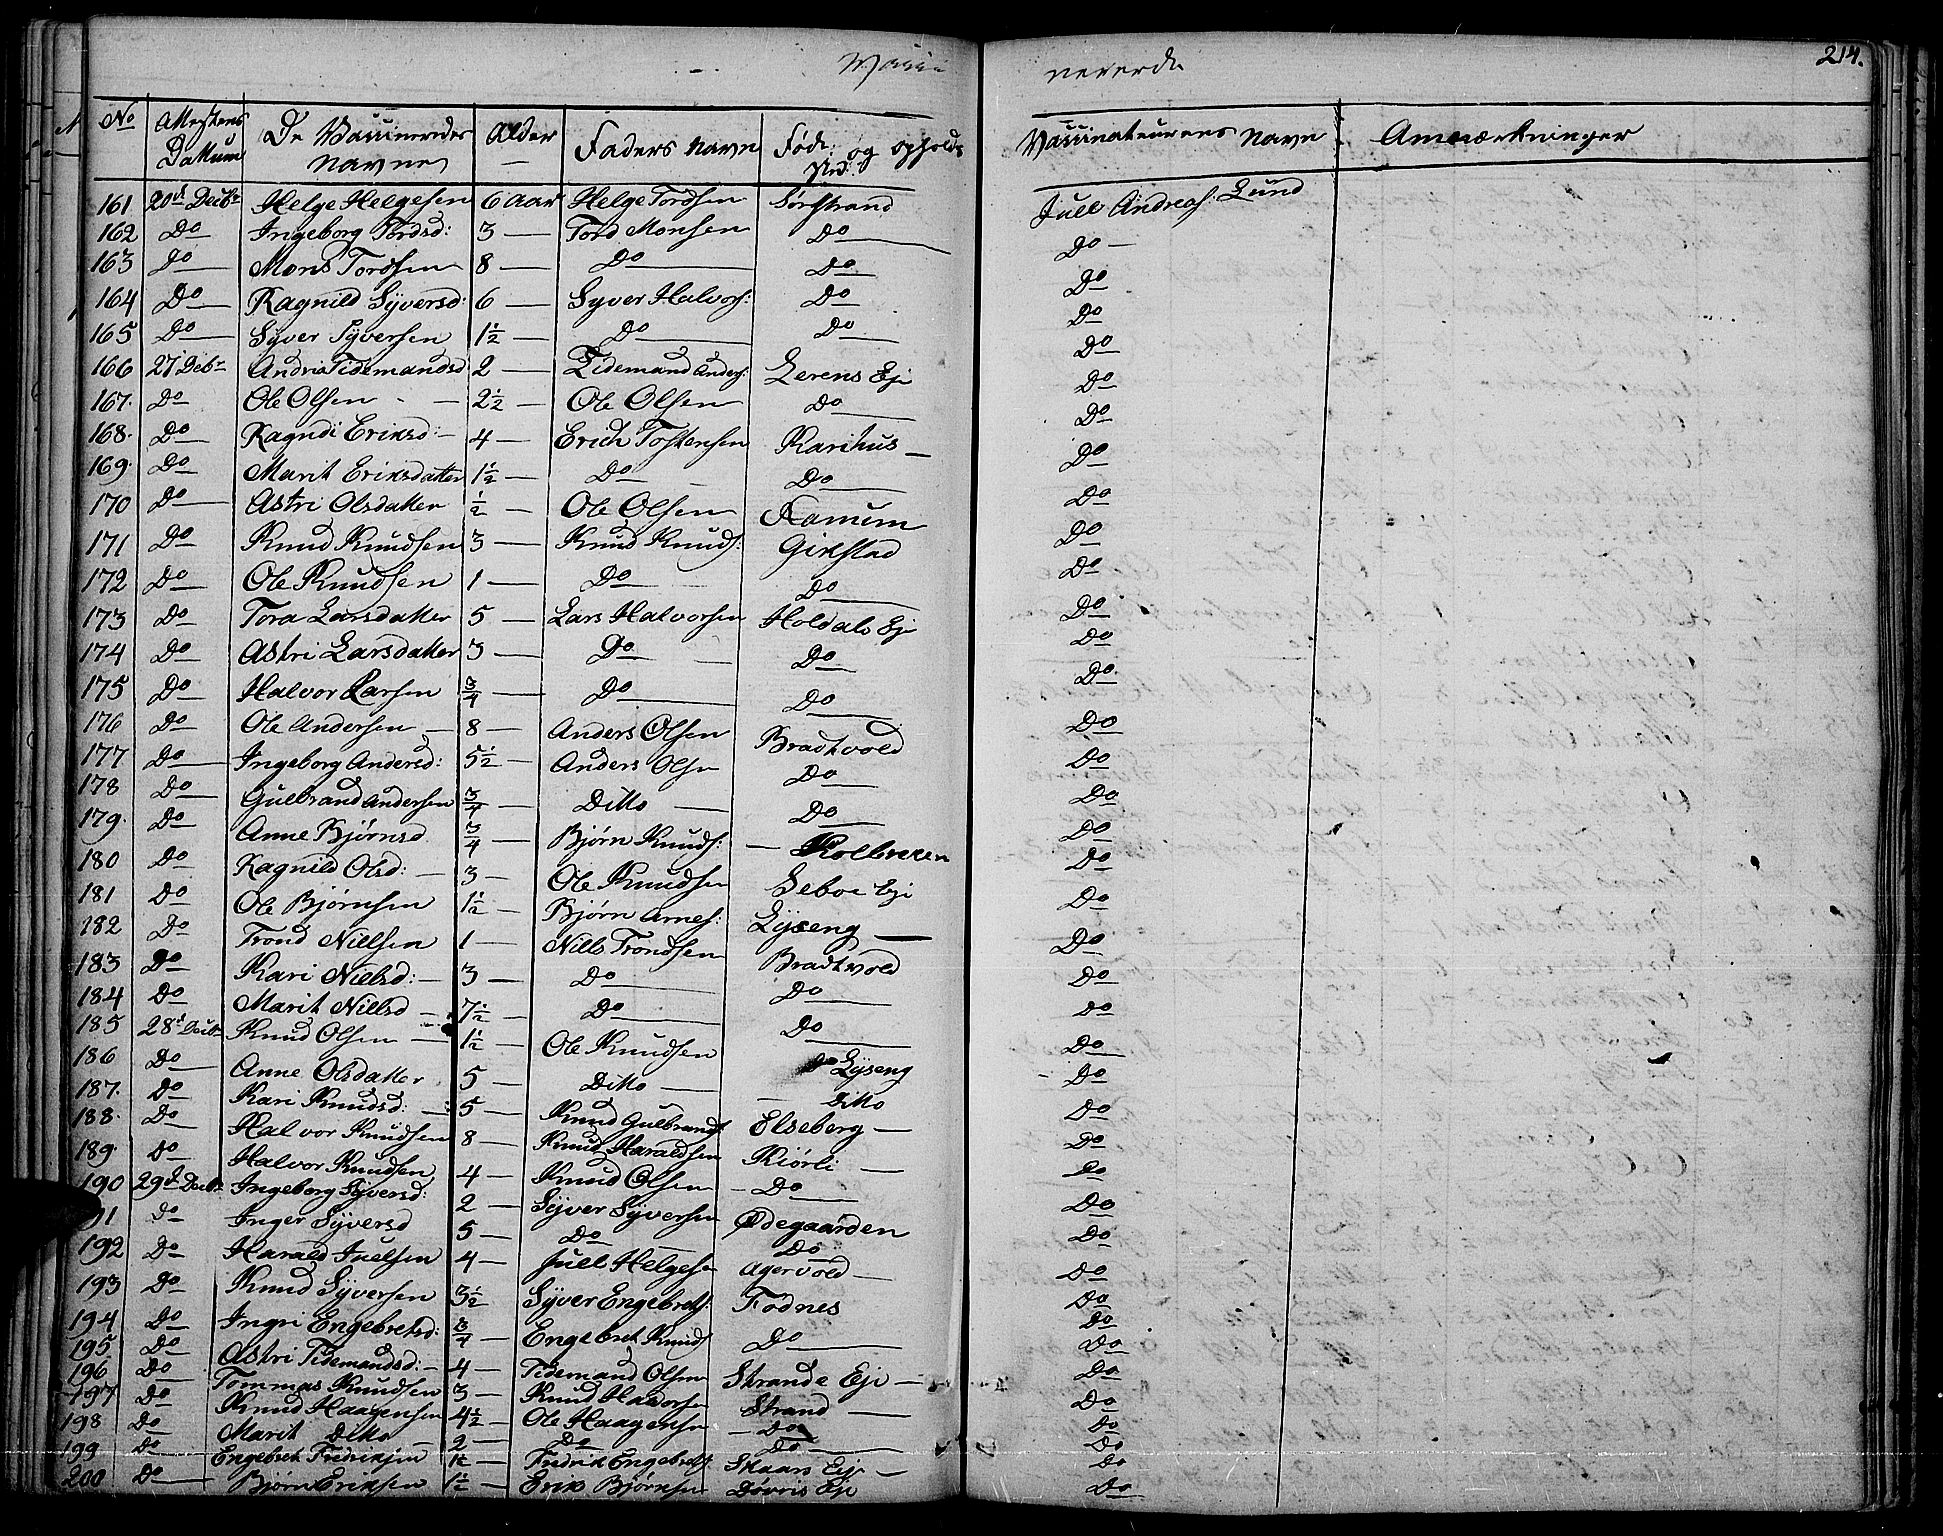 Vacci nerede 214.
No Attestens Dattum De Vaccineredes Navne Alder Faders Navne Føde og Opholds Sted Vaccinateurens Navn Anmærkninger
161 20d Decbr Helge Helgesen 6 Aar Helge Tordsen Sørstrand Juel Andreas Lund
162 Do Ingeborg Tordsd: 3 — Tord Monsen Do Do
163 Do Mons Tordsen 8 — Do Do Do
164 Do Ragnild Syversd: 6 — Syver Halvors: Do Do
165 Do Syver Syversen 1½ — Do Do Do
166 27 Decbr Andria Tidemandsd 2 — Tidemand Anders: Lerens Eje Do
167. Do Ole Olsen 2½ — Ole Olsen Do Do
168. Do Ragndi Eriksd: 4 — Erich Tostensen Karihus Do
169. Do Marit Eriksdatter 1½ — Do Do Do
170 Do Astri Olsdatter ½ — Ole Olsen Ramum Do
171 Do Knud Knudsen 3 — Knud Knuds: Girstad Do
172 Do Ole Knudsen 1 — Do Do Do
173 Do Tora Larsdatter 5 — Lars Halvorsen Holdals Eje Do
174 Do Astri Larsdatter 3 — Do Do Do
175 Do Halvor Larsen ¾ — Do Do Do
176 Do Ole Andersen 8 — Anders Olsen Bradtvold Do
177 Do Ingeborg Andersd: 5½ — Anders Olsn Do Do
178 Do Gulbrand Andersen ¾ — Ditto Do Do
179. Do Anne Bjørnsd ¾ — Bjørn Knuds: Kolbreken Do
180 Do Ragnild Olsd: 3 — Ole Knudsen Seboe Eje Do
181 Do Ole Bjørnsen 1½ — Bjørn Arnes: Lyseng Do
182 Do Trond Nielsen 1 — Nills Trondsen Bradtvold Do
183 Do Kari Nielsd: 3 — Do Do Do
184 Do Marit Nielsd 7½ — Do Do Do
185 28d Decbr Knud Olsen 1½ — Ole Knudsen Lyseng Do
186 Do Anne Olsdatter 5 — Ditto Ditto Do
187. Do Kari Knudsd: 5 — Knud Gulbrands: Elseberg Do
188. Do Halvor Knudsen 8 — Knud Haraldsen Kiørli Do
189. Do Halvor Knudsen 4 — Knud Olsen Do Do
190 29d Decbr Ingeborg Syversd: 2 — Syver Syversen Ødegaarden Do
91 Do Inger Syversd 5 — Do Do Do
192 Do Harald Juelsen 4 — Juel Helgesen Agervold Do
193 Do Knud Syversen 3½ Syver Engebrets: Fodnes Do
194 Do Ingri Engebretsd: ¾ — Engebret Knuds Do Do
195 Do Astri Tidemandsd: 4 — Tidemand Olsen Strande Eje Do
196 Do Tommas Knudsen 3 — Knud Halvorsen Strand Do
197 Do Knud Haagensen 4½ Ole Haagensen Do Do
198 Do Marit Ditto 2 — Do Do Do
199 Do Engebret Fredriksen 1½ — Fredrik Engebrets: Skaars Eje Do
200 Do Bjørn Eriksen 1½ — Erik Bjørnsen Dovris Eje Do